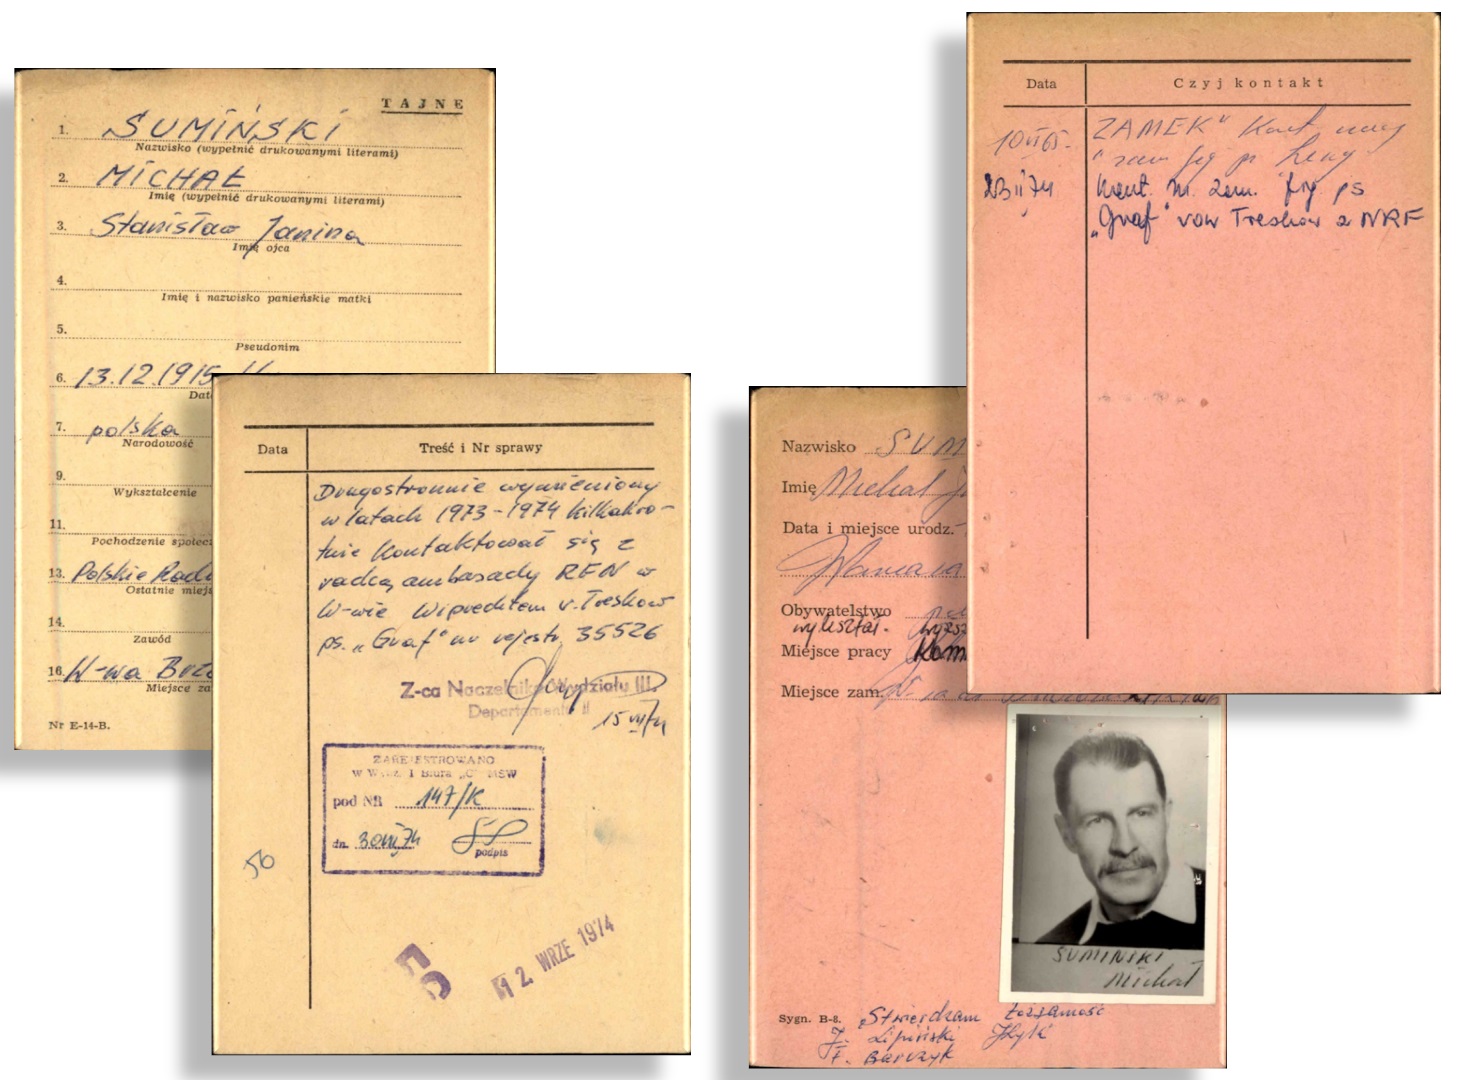 TAJNE
1. SUMIŃSKI
Nazwisko (wypełnić drukowanymi literami)
2. MICHAŁ
Imię (wypełnić drukowanymi literami)
3. Stanisław Janina
Imię ojca
4.
Imię i nazwisko panieńskie matki
5.
Pseudonim
6. 13.12.1915
Dat
7. polska
Narodowość
9.
Wykształcenie
11.
Pochodzenie społec
13. Polskie Rad
Ostatnie miej
14.
Zawód
16. W-wa
Miejsce za
Nr E-14-B.
Data
Treść i Nr sprawy
Drugostronnie wymieniony
w latach 1973-1974 kilkakro-
tnie kontaktował się z
radcą ambasady RFN w
W-wie Wiprechtem v. Treskow
ps. „Graf" nr rejestr. 35526
Z-ca Naczelnika Wydziału III.
Departamentu II
ZAREJESTROWANO
w Wydz. I Biura „C" MSW
pod NR 147/K
dn.
podpis
56
12 WRZE 1974
Nazwisko SUM
Imię Michał
Data i miejsce urodz.
Warszawa
Obywatelstwo
wykształ. wyższ
Miejsce pracy
Miejsce zam.
SUMIŃSKI
Michał
Sygn. B-8. Stwierdzam tożsamość
J. Lipiński
F. Barczyk
Data
Czyj kontakt
10 VI 65. ZAMEK"
23 II 74 kont. m. zam. fig ps
„Graf" von Treskow z NRF